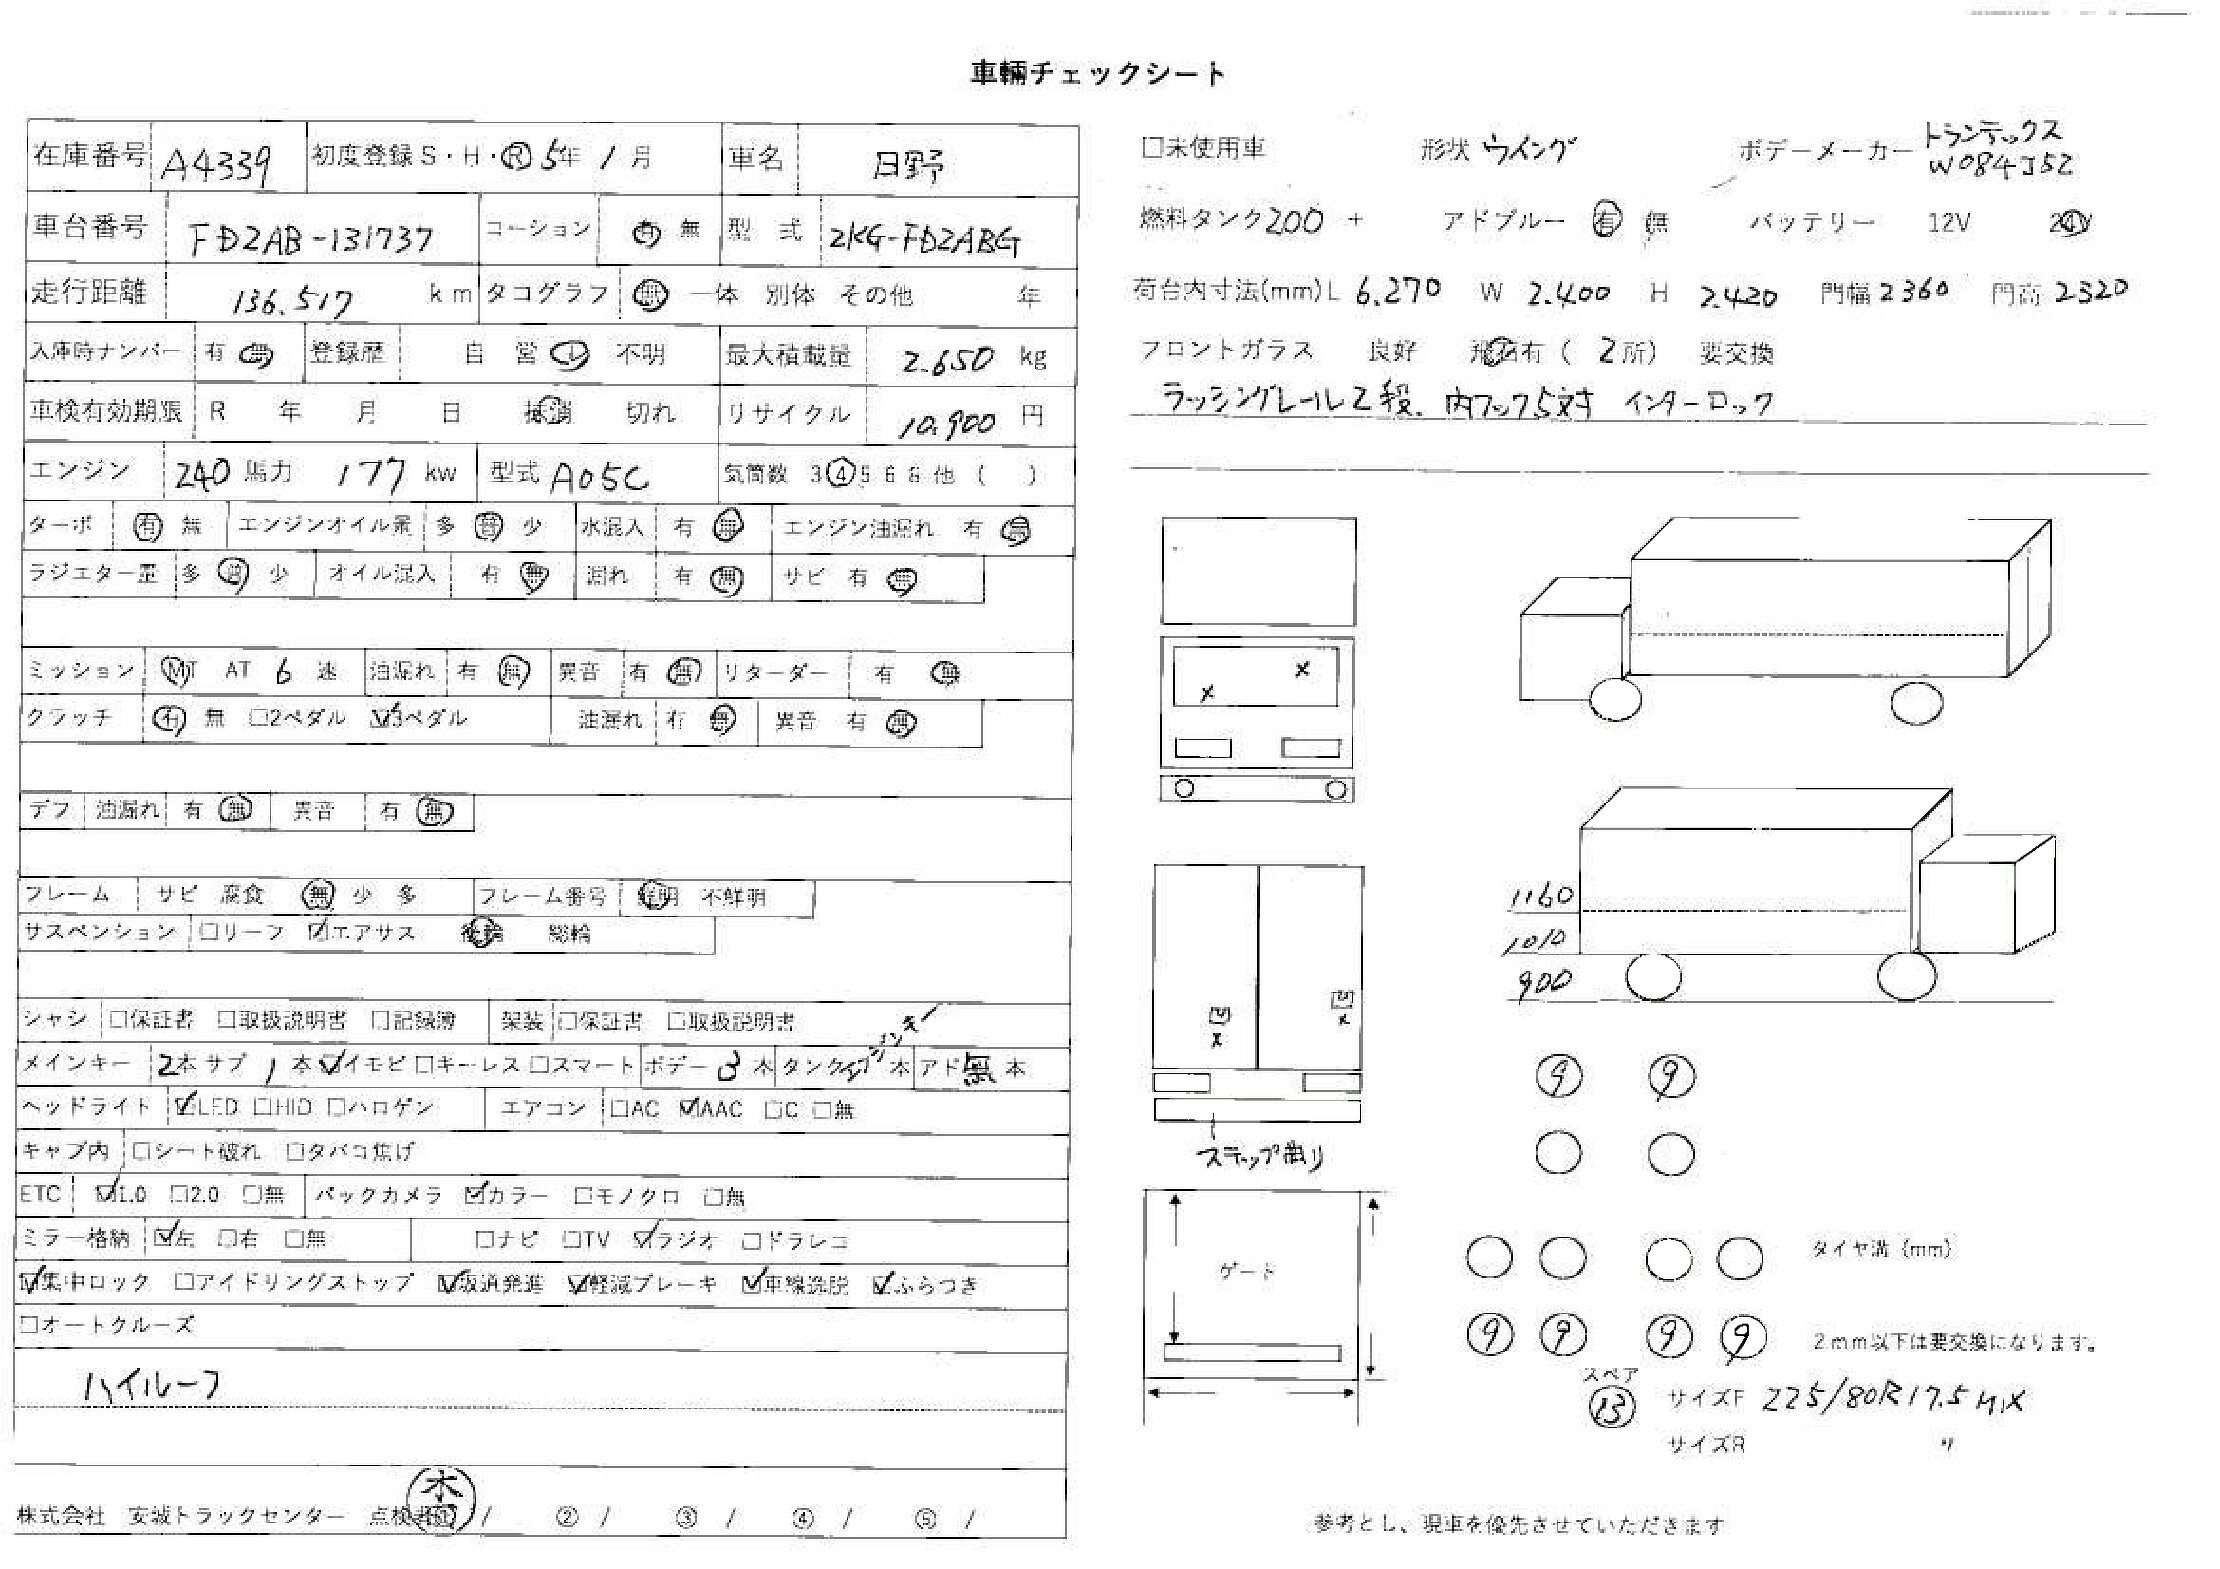 車輛チェックシート
在庫番号 A4339 初度登録 S・H・R 5年 1月 車名 日野
車台番号 FD2AB-131737 コーション 有 無 型式 2KG-FD2ABG
走行距離 136.517 km タコグラフ 無 一体 別体 その他 年
入庫時ナンバー 有 無 登録歴 自 営 不明 最大積載量 2.650 kg
車検有効期限 R 年 月 日 抹消 切れ リサイクル 10.900 円
エンジン 240 馬力 177 kw 型式 A05C 気筒数 3 4 5 6 8 他 ( )
ターボ 有 無 エンジンオイル量 多 普 少 水混入 有 無 エンジン油漏れ 有 無
ラジエター量 多 普 少 オイル混入 有 無 漏れ 有 無 サビ 有 無
ミッション MT AT 6 速 油漏れ 有 無 異音 有 無 リターダー 有 無
クラッチ 有 無 □2ペダル ☑3ペダル 油漏れ 有 無 異音 有 無
デフ 油漏れ 有 無 異音 有 無
フレーム サビ 腐食 無 少 多 フレーム番号 鮮明 不鮮明
サスペンション □リーフ ☑エアサス 後輪 総輪
シャシ □保証書 □取扱説明書 □記録簿 架装 □保証書 □取扱説明書
メインキー 2本 サブ 1本 ☑イモビ □キーレス □スマート ボデー 3 本 タンク 本 アド 無 本
ヘッドライト ☑LED □HID □ハロゲン エアコン □AC ☑AAC □C □無
キャブ内 □シート破れ □タバコ焦げ
ETC ☑1.0 □2.0 □無 バックカメラ ☑カラー □モノクロ □無
ミラー格納 ☑左 □右 □無 □ナビ □TV ☑ラジオ □ドラレコ
☑集中ロック □アイドリングストップ ☑坂道発進 ☑軽減ブレーキ ☑車線逸脱 ☑ふらつき
□オートクルーズ
ハイルーフ
株式会社 安城トラックセンター 点検者① / ② / ③ / ④ / ⑤ /
木
□未使用車 形状 ウイング ボデーメーカー トランテックス
W084J52
燃料タンク 200 + アドブルー 有 無 バッテリー 12V 24V
荷台内寸法(mm) L 6.270 W 2.400 H 2.420 門幅 2360 門高 2320
フロントガラス 良好 飛石有 ( 2所) 要交換
ラッシングレール2段. 内フック5対 インターロック
× ×
1160
1010
900
凹 × 凹 ×
ステップ凹り
ゲート
9 9
タイヤ溝 (mm)
9 9 9 9 2mm以下は要交換になります。
スペア
13 サイズF 225/80R17.5 MIX
サイズR 〃
参考とし、現車を優先させていただきます